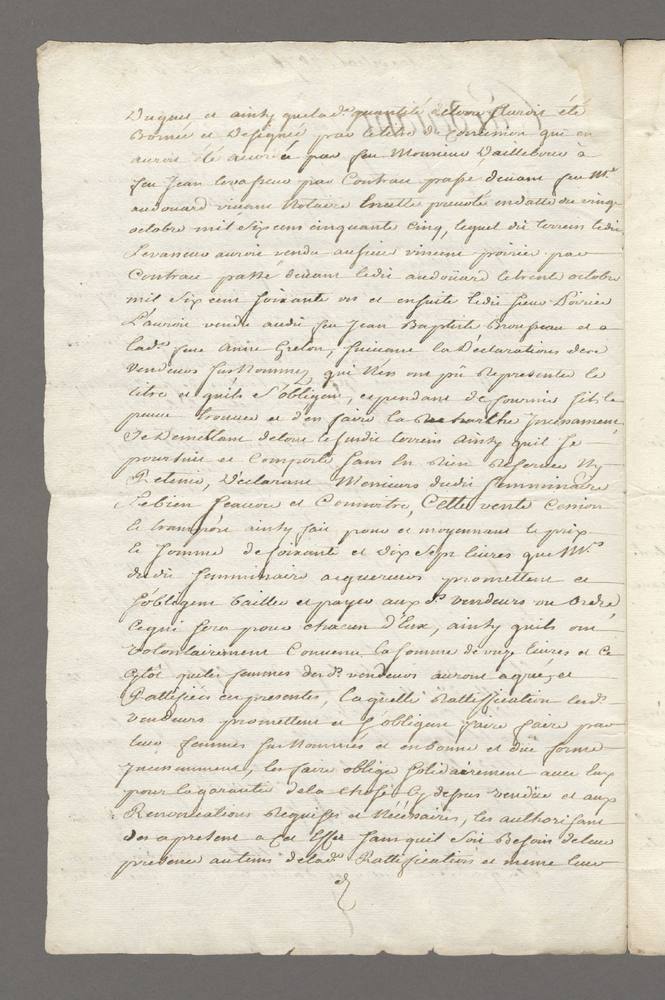 Duquet et ainsy que lad. quantité de terre auroit été
Bornée et Designée par le titre de Concession qui en
auroit été accordé par feu Monsieur Dailleboust à
feu Jean Levasseur par Contract passé devant feu Mr.
audouard vivant Notaire En cette prevoté en datte du vingt
octobre mil Six cens cinquante Cinq, lequel dit terrein ledit
Levasseur auroit vendu au sieur vincent poirier par
Contract passé devant ledit audoüard le trent octobre
mil Six cent soixante un et ensuite ledit sieur Poirier
L'auroit vendu audit feu Jean Baptiste Brousseau et a
lad. feue Anne Grelon, suivant la Declarations desd.
vendeurs susNommez, qui N'en ont pû Representer le
titre et qu'ils S'obligent, cependant de fournir s'ils le
peuve trouver et d'en faire la Recherche Incessament,
Se Demettant de tout le susdit terrein Ainsy qu'il se
poursuit et Comporte sans En Rien Reserver Ny
Retenir, Declarant Messieurs dudit Semminaire
Le bien sçavoir et Connoitre, Cette vente Cession
Et transport ainsy fait pour et moyennant le prix
Et somme de soixante et Dix Sept livres que Mrs.
du dit Semminaire acquereurs promettent et
s'obligent bailler et payer aux ds. vendeurs ou ordre
Ce qui sera pour chacun d'Eux, ainsy qu'ils ont
volontairement Convenu la somme de onze Livres et Ce
sytôt que les femmes desds. vendeurs auront agréé et
Rattifiées ces presentes, laquelle Rattiffication lesds.
vendeurs promettent et s'obligent faire faire par
leurs femmes susNommées et en bonne et duë forme
Incessamment, les faire obliger solidairement avec Eux
pour la garantie de la chose Cy dessus vendüe et aux
Renonciations Requises et Nécessaires, les authorisant
des apresent a Cet Effet sans quil Soit Besoin de leur
presence au tems de lad. Rattiffication et meme leur